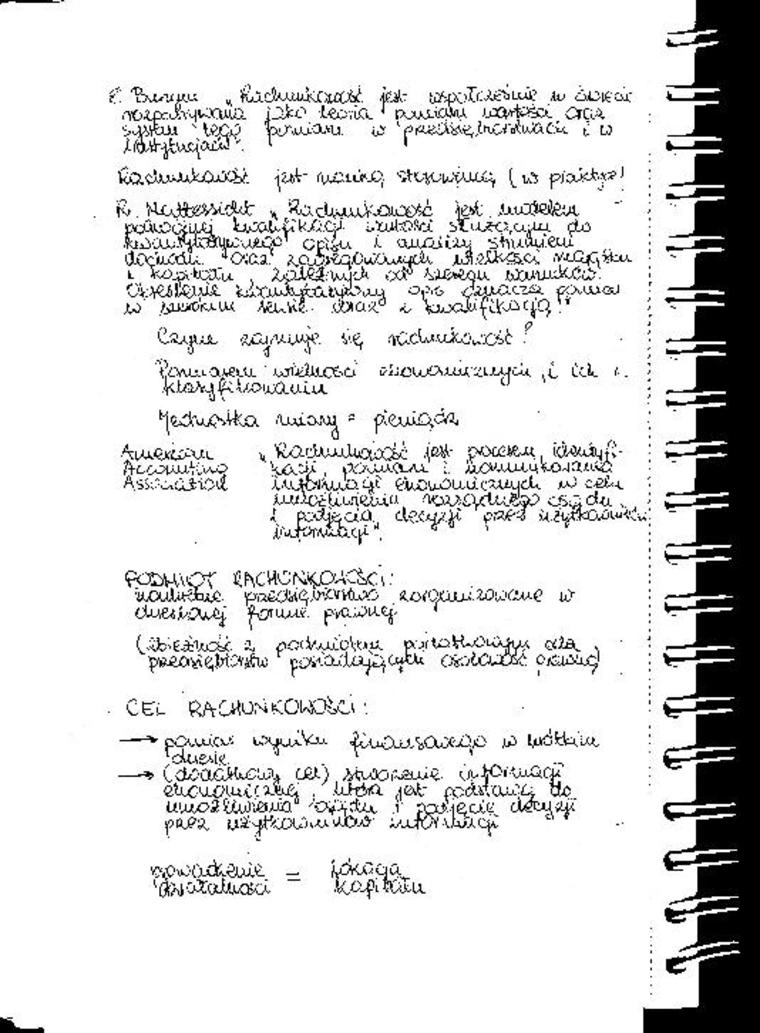 E. Burzym „Rachunkowość jest współcześnie w świecie
rozpatrywana jako teoria pomiaru wartości oraz
system tego pomiaru w przedsiębiorstwach i w
instytucjach".
Rachunkowość jest nauką stosowaną (w praktyce)
R. Mattessicht „Rachunkowość jest modelem
kwalifikacji wartości służącym do
kwantytatywnego opisu i analizy strumieni
dochodu oraz zagregowanych wielkości majątku
i kapitału zależnych od szeregu warunków.
Określenie kwantytatywny opis oznacza pomiar
w szerokim sensie wraz z kwalifikacją."
Czym zajmuje się rachunkowość?
Pomiarem wielkości ekonomicznych i ich
klasyfikowaniem
Jednostka miary = pieniądz
American „Rachunkowość jest procesem identyfi-
Accounting kacji, pomiaru i komunikowania
Association informacji ekonomicznych w celu
umożliwienia rozsądnego osądu
i podjęcia decyzji przez użytkowników
informacji"
PODMIOT RACHUNKOWOŚCI:
konkretne przedsiębiorstwo zorganizowane w
określonej formie prawnej
(zbieżność z podmiotem podatkowym dla
przedsiębiorstw posiadających osobowość prawną)
CEL RACHUNKOWOŚCI:
→ pomiar wyniku finansowego w krótkim
okresie
→ (dodatkowy cel) stworzenie informacji
ekonomicznej, która jest podstawą do
umożliwienia osądu i podjęcie decyzji
przez użytkowników informacji
prowadzenie = lokata
działalności kapitału